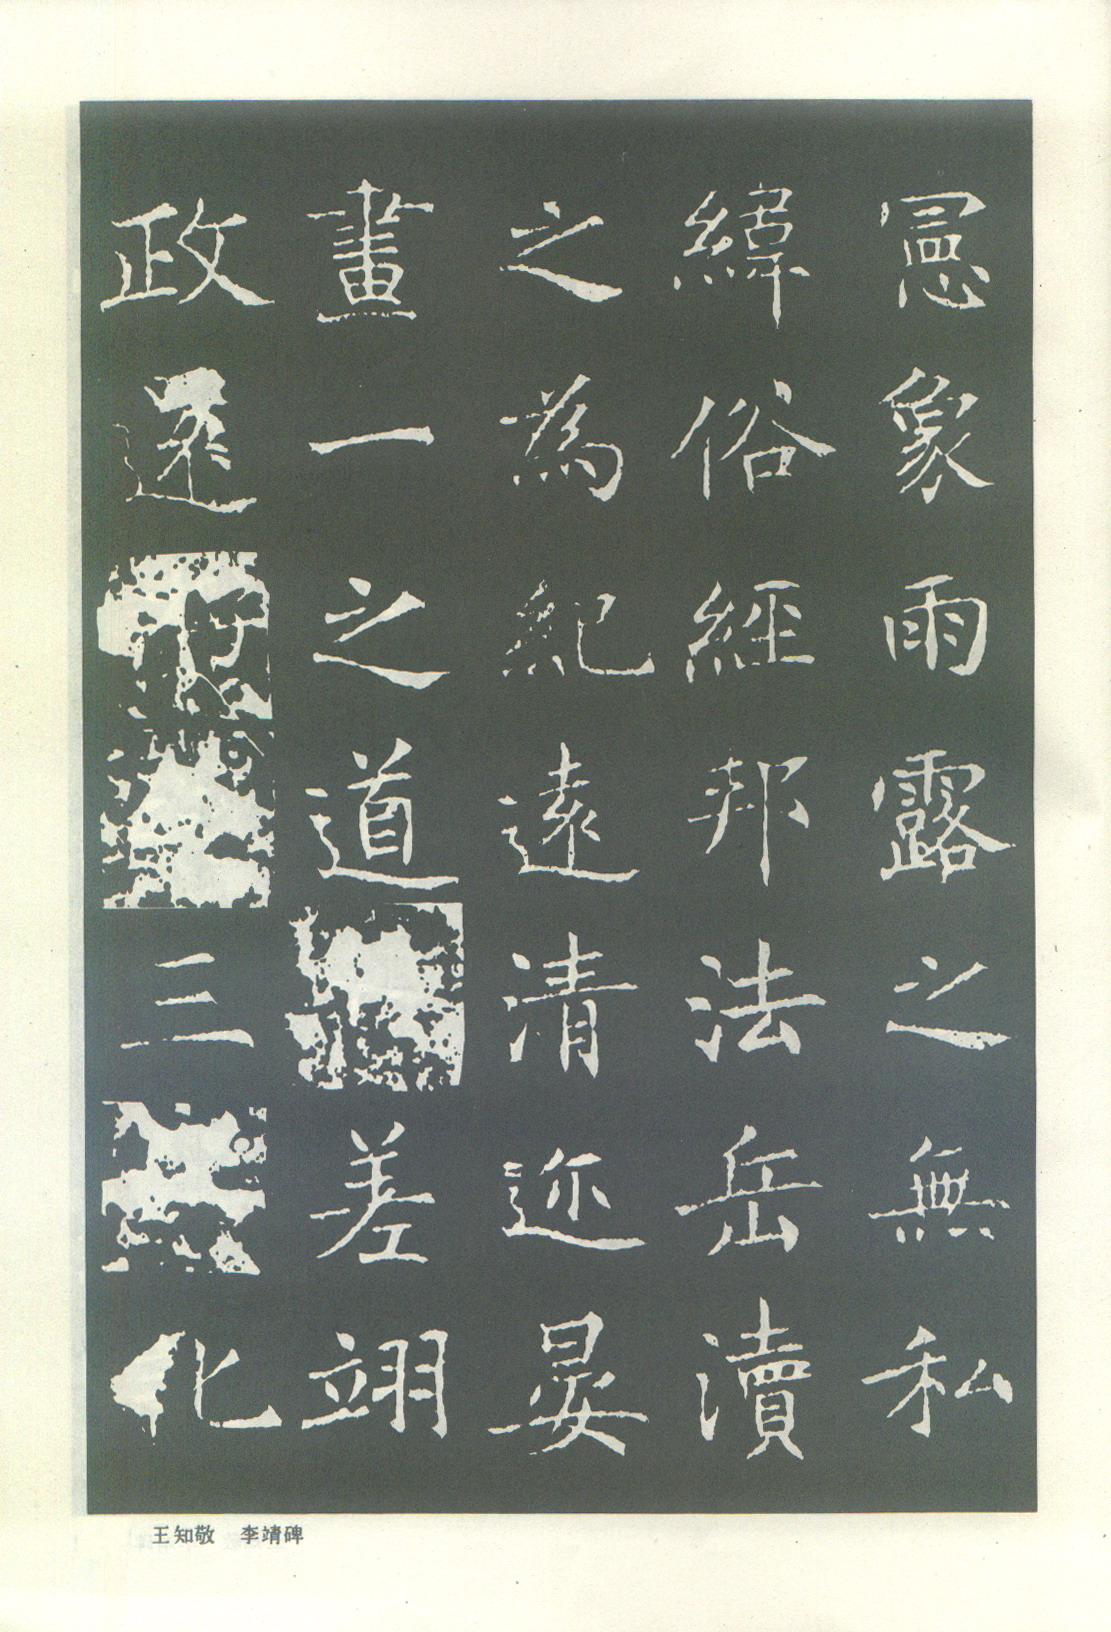 罳象雨露之無私
緯俗經邦法岳瀆
之為紀遠清迩晏
畫一之道差翊
政
三
化
王知敬 李靖碑